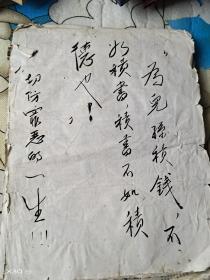 为兒孫積錢，不
如積書，積書不如積
德也！
切防罪惡的一生!!!